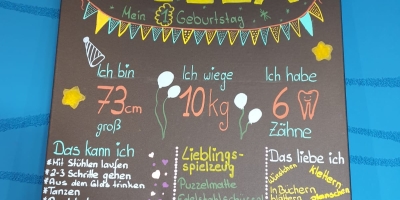 Mein 1 Geburtstag
Ich bin
73cm
groß
Ich wiege
10kg
Ich habe
6
Zähne
Das kann ich
*Mit Stühlen laufen
*2-3 Schritte gehen
*Aus dem Glas trinken
*Tanzen
Lieblings-
spielzeug
Puzzelmatte
Das liebe ich
Würstchen
klettern
in Büchern
blättern